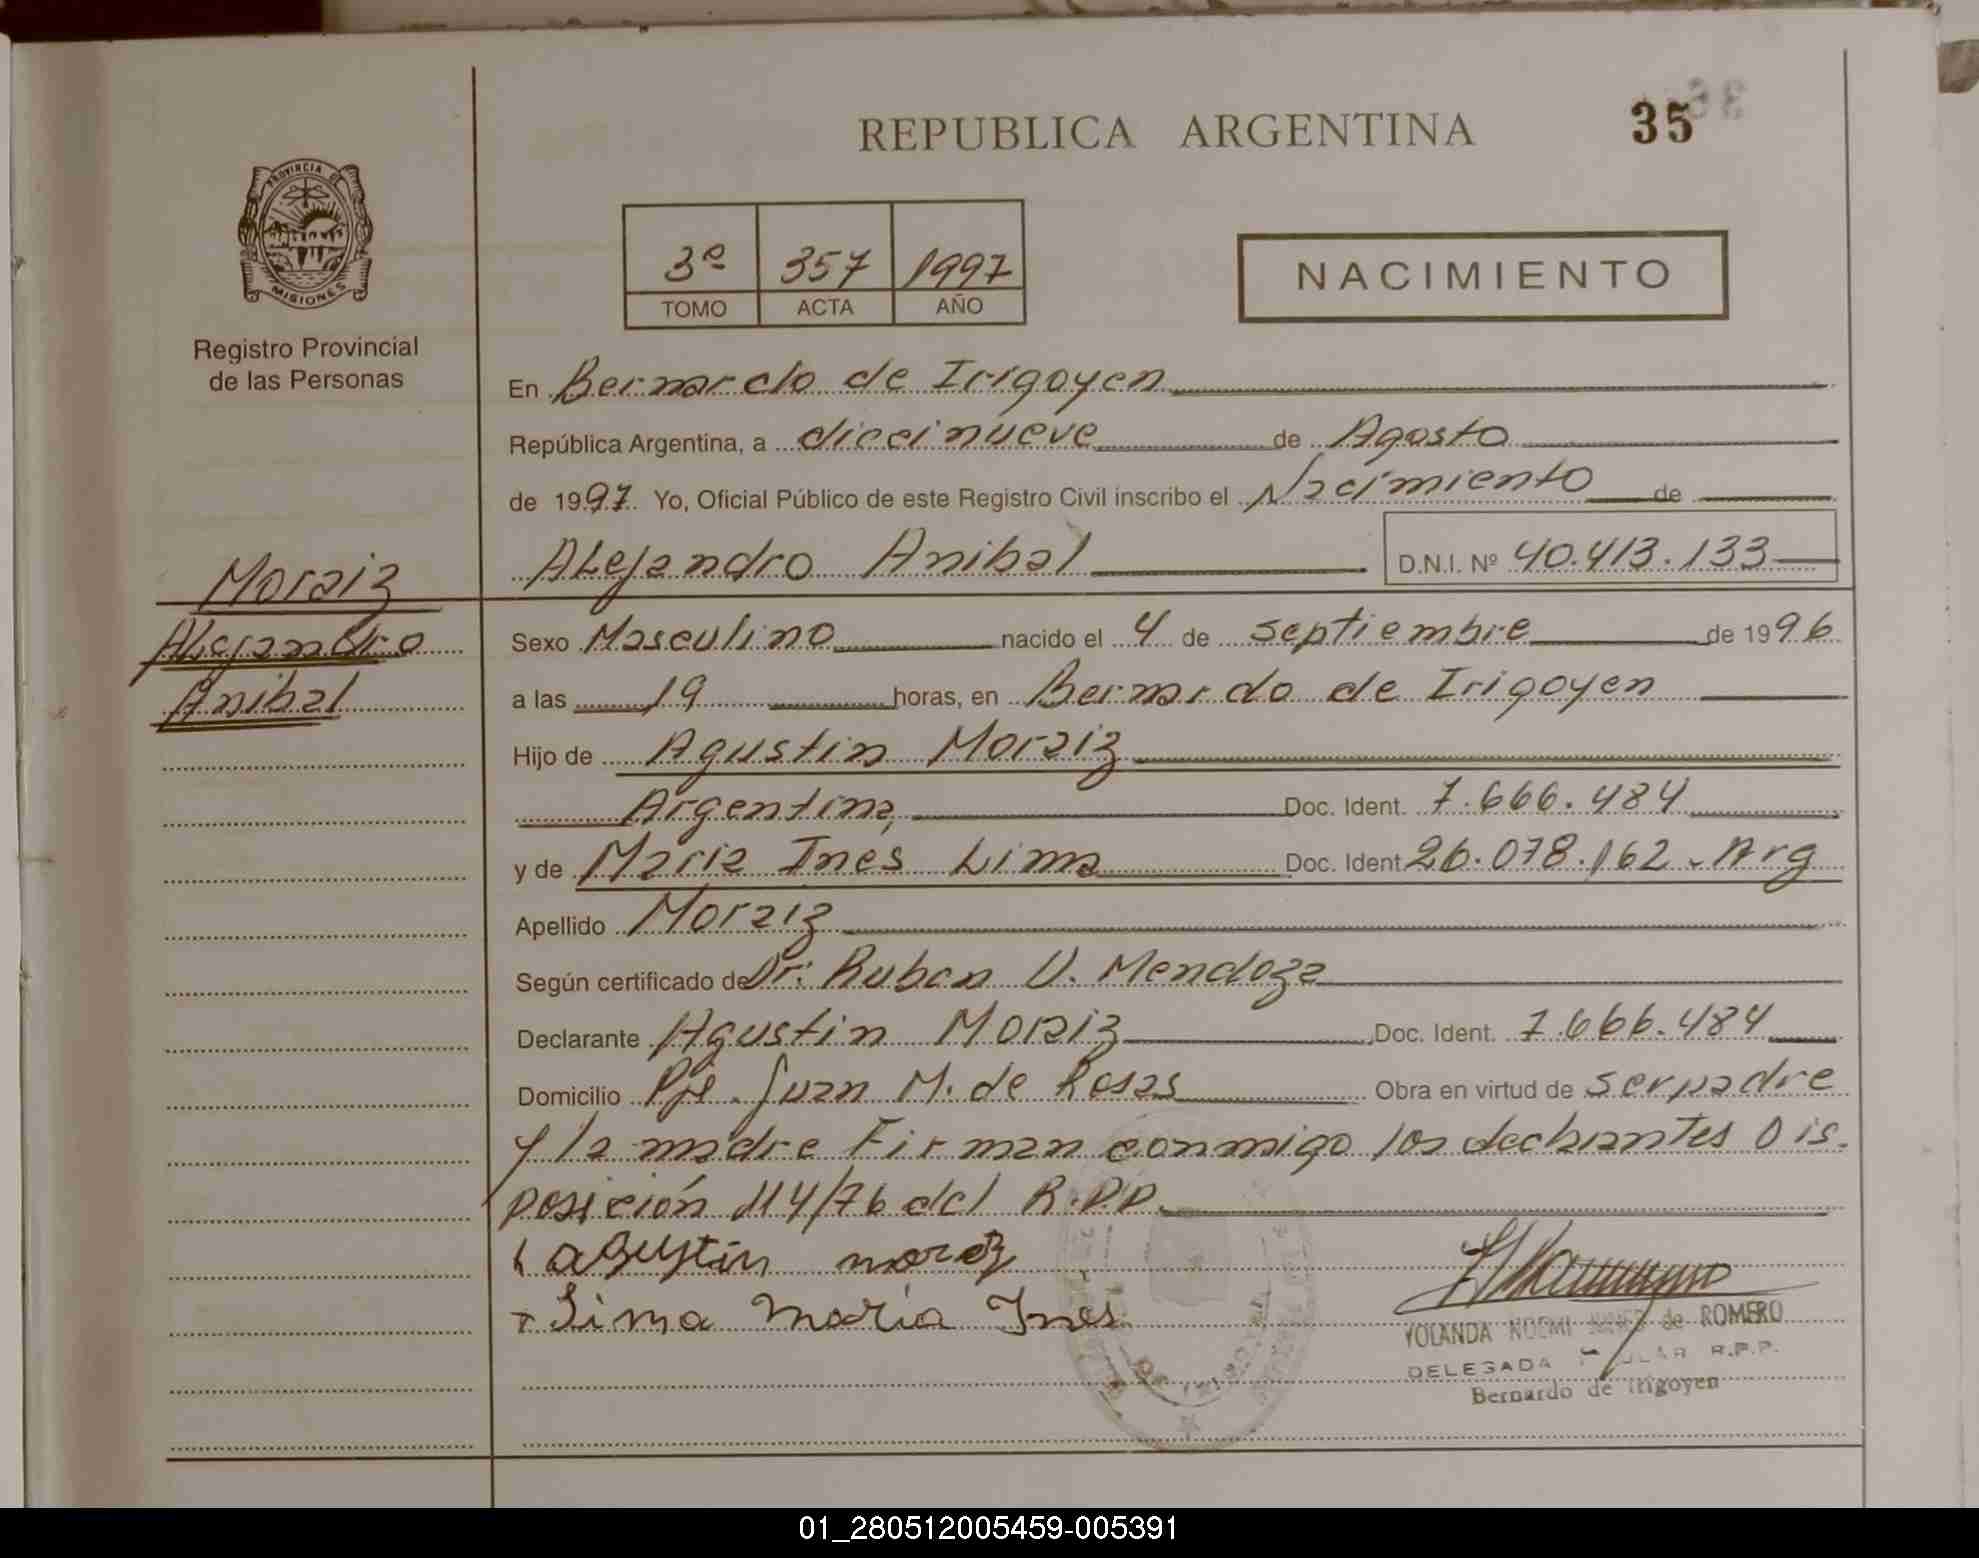 REPUBLICA ARGENTINA
35
PROVINCIA DE
MISIONES
Registro Provincial
de las Personas
3º 357 1997
TOMO ACTA AÑO
NACIMIENTO
En Bernardo de Irigoyen
República Argentina, a diecinueve de Agosto
de 1997. Yo, Oficial Público de este Registro Civil inscribo el Nacimiento de
Alejandro Anibal D.N.I. Nº 40.413.133
Moraiz
Alejandro
Anibal
Sexo Masculino nacido el 4 de septiembre de 1996
a las 19 horas, en Bernardo de Irigoyen
Hijo de Agustin Moraiz
Argentina, Doc. Ident. 7.666.484
y de Maria Ines Lima Doc. Ident. 26.078.162 - Arg
Apellido Moraiz
Según certificado de Dr: Ruben V. Mendoza
Declarante Agustin Moraiz Doc. Ident. 7.666.484
Domicilio Pje. Juan M. de Rosas Obra en virtud de ser padre
y la madre Firman conmigo los declarantes Dis-
posición 114/76 del R.P.P.
Agustin
x Lima Maria Ines
YOLANDA NOEMI de ROMERO
DELEGADA R.P.P.
Bernardo de Irigoyen
01_280512005459-005391